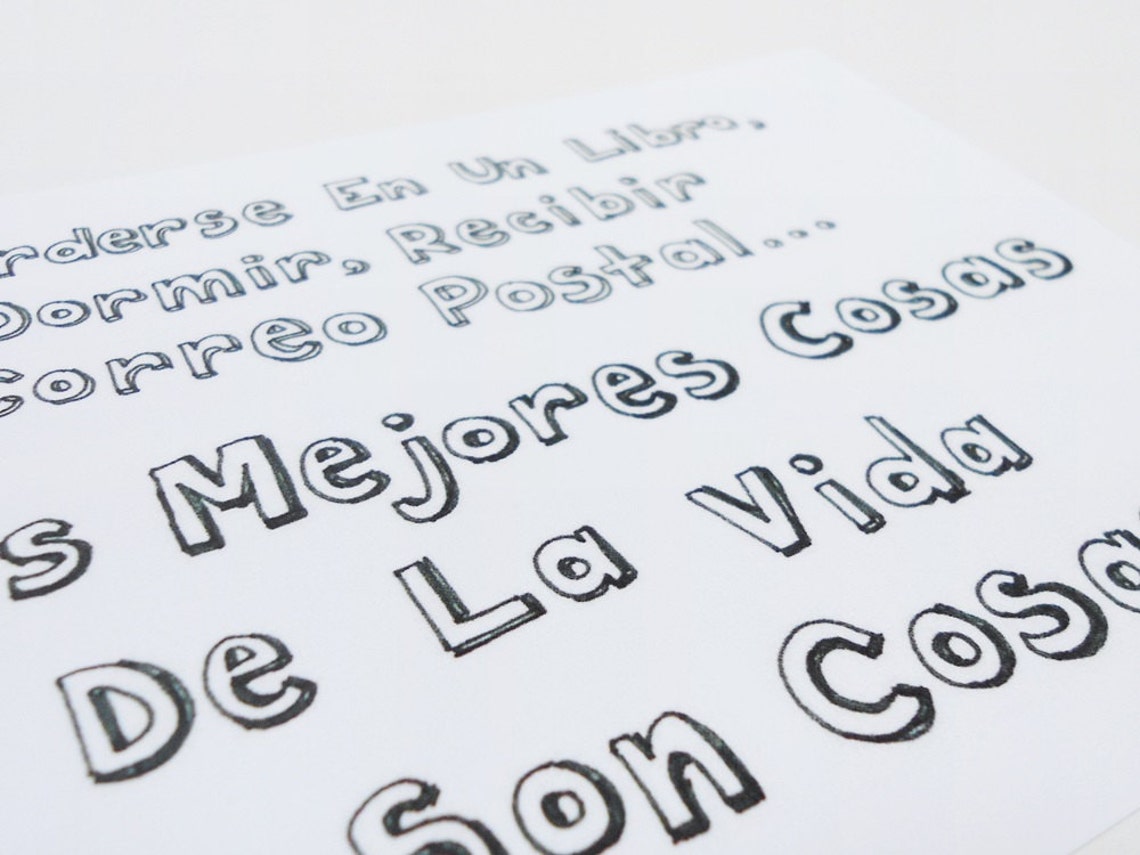 rderse En Un Libro,
Dormir, Recibir
Correo Postal...
s Mejores Cosas
De La Vida
Son Cosa